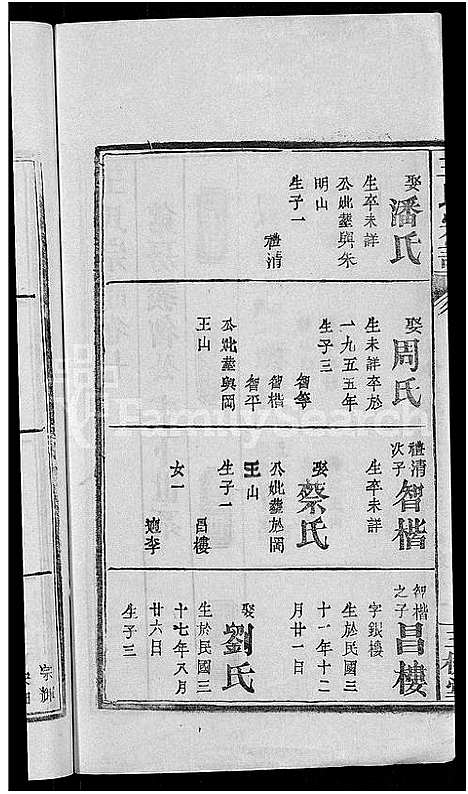 娶潘氏
生卒未詳
公妣塟與朱
明山
生子一
禮清
娶周氏
生未詳卒於
一九五五年
生子三
智等
智楷
智平
公妣塟與岡
王山
禮清
次子
智楷
生卒未詳
娶蔡氏
公妣塟於岡
王山
生子一
昌樓
女一
適李
智楷
之子
昌樓
字銀樓
生於民國三
十一年十二
月廿一日
娶劉氏
生於民國三
十七年八月
廿六日
生子三
宗輝
FamilySearch